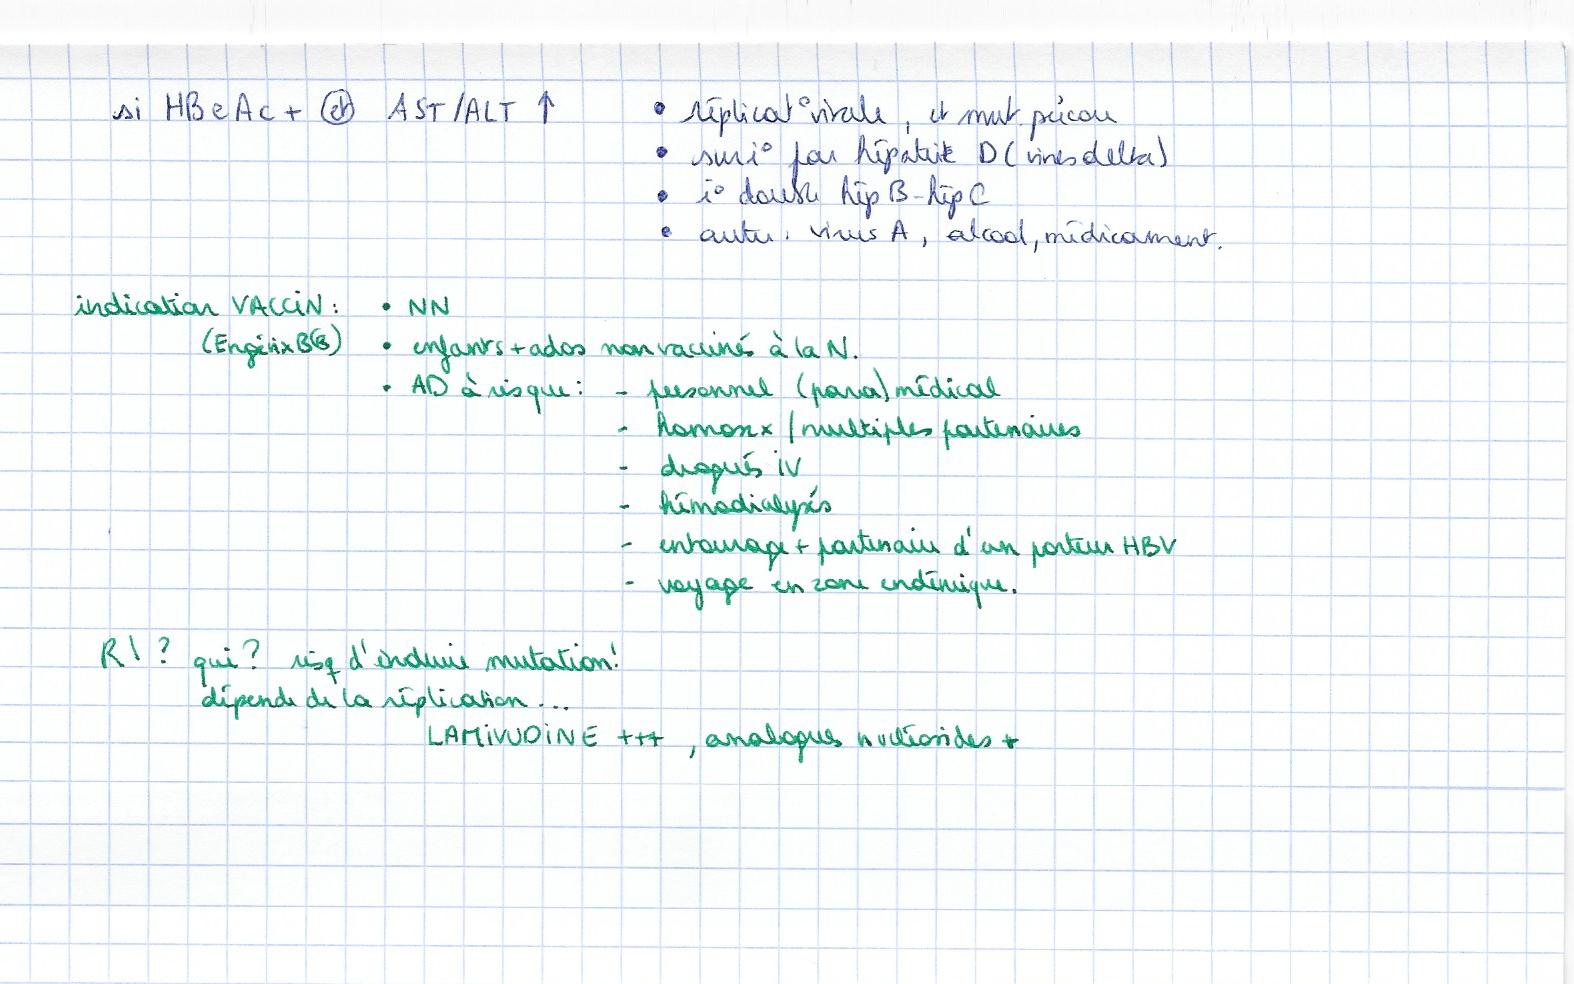 si HBeAc + et AST/ALT ↑ • réplicat° virale, et mut. précore
• suri° par hépatite D (virus delta)
• i° double hép B - hép C
• autre. virus A, alcool, médicament.
indication VACCiN : • NN
(Engérix B®) • enfants + ados non vaccinés à la N.
• AD à risque : - personnel (para)médical
- homosx / multiples partenaires
- drogués iV
- hémodialysés
- entourage + partenaire d'un porteur HBV
- voyage en zone endémique.
R\ ? qui ? risq d'induire mutation!
dépend de la réplication ...
LAMiVUDiNE +++ , analogues nucléosides +